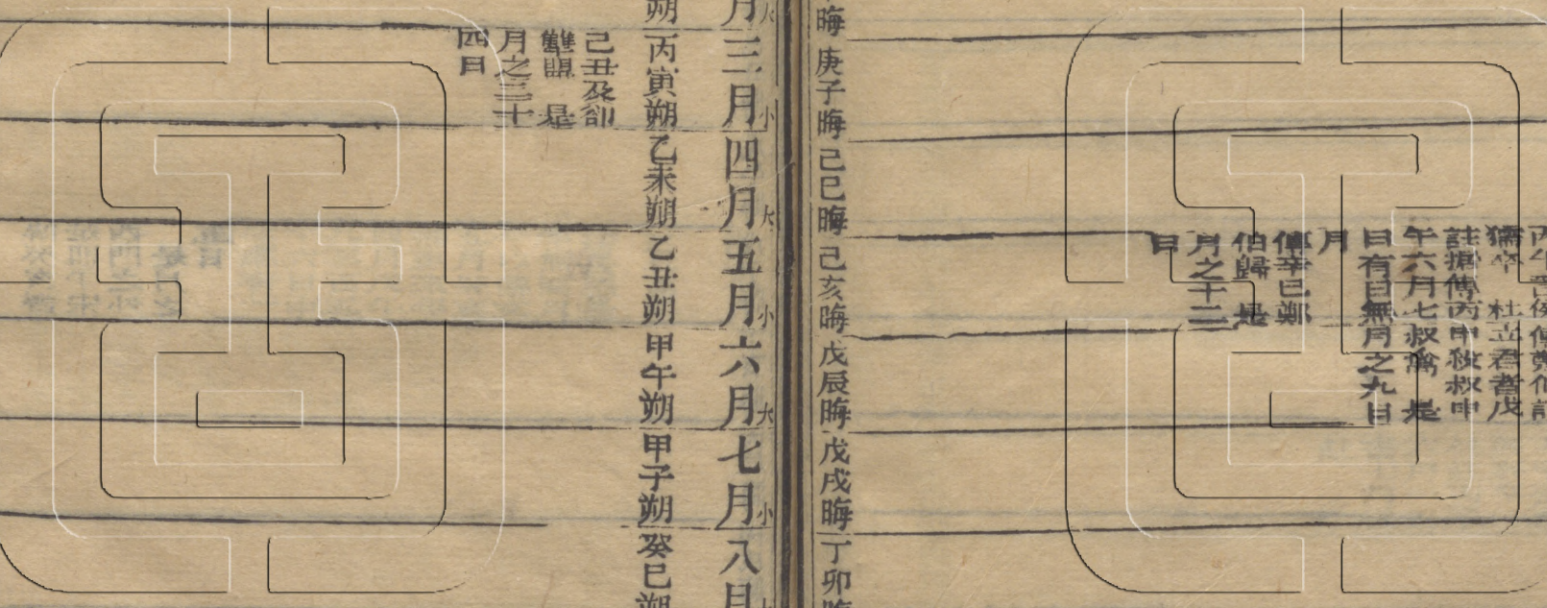 註據傳丙申殺叔申
午六月七叔禽 是
日有日無月之九日
月
傳辛巳鄭
伯歸 是
月之十二
日
晦 庚子晦 己巳晦 己亥晦 戊辰晦 戊戌晦 丁卯晦
月大 三月小 四月大 五月小 六月大 七月小 八月
朔 丙寅朔 乙未朔 乙丑朔 甲午朔 甲子朔 癸巳朔
己丑及郤
犨盟 是
月之二十
四日